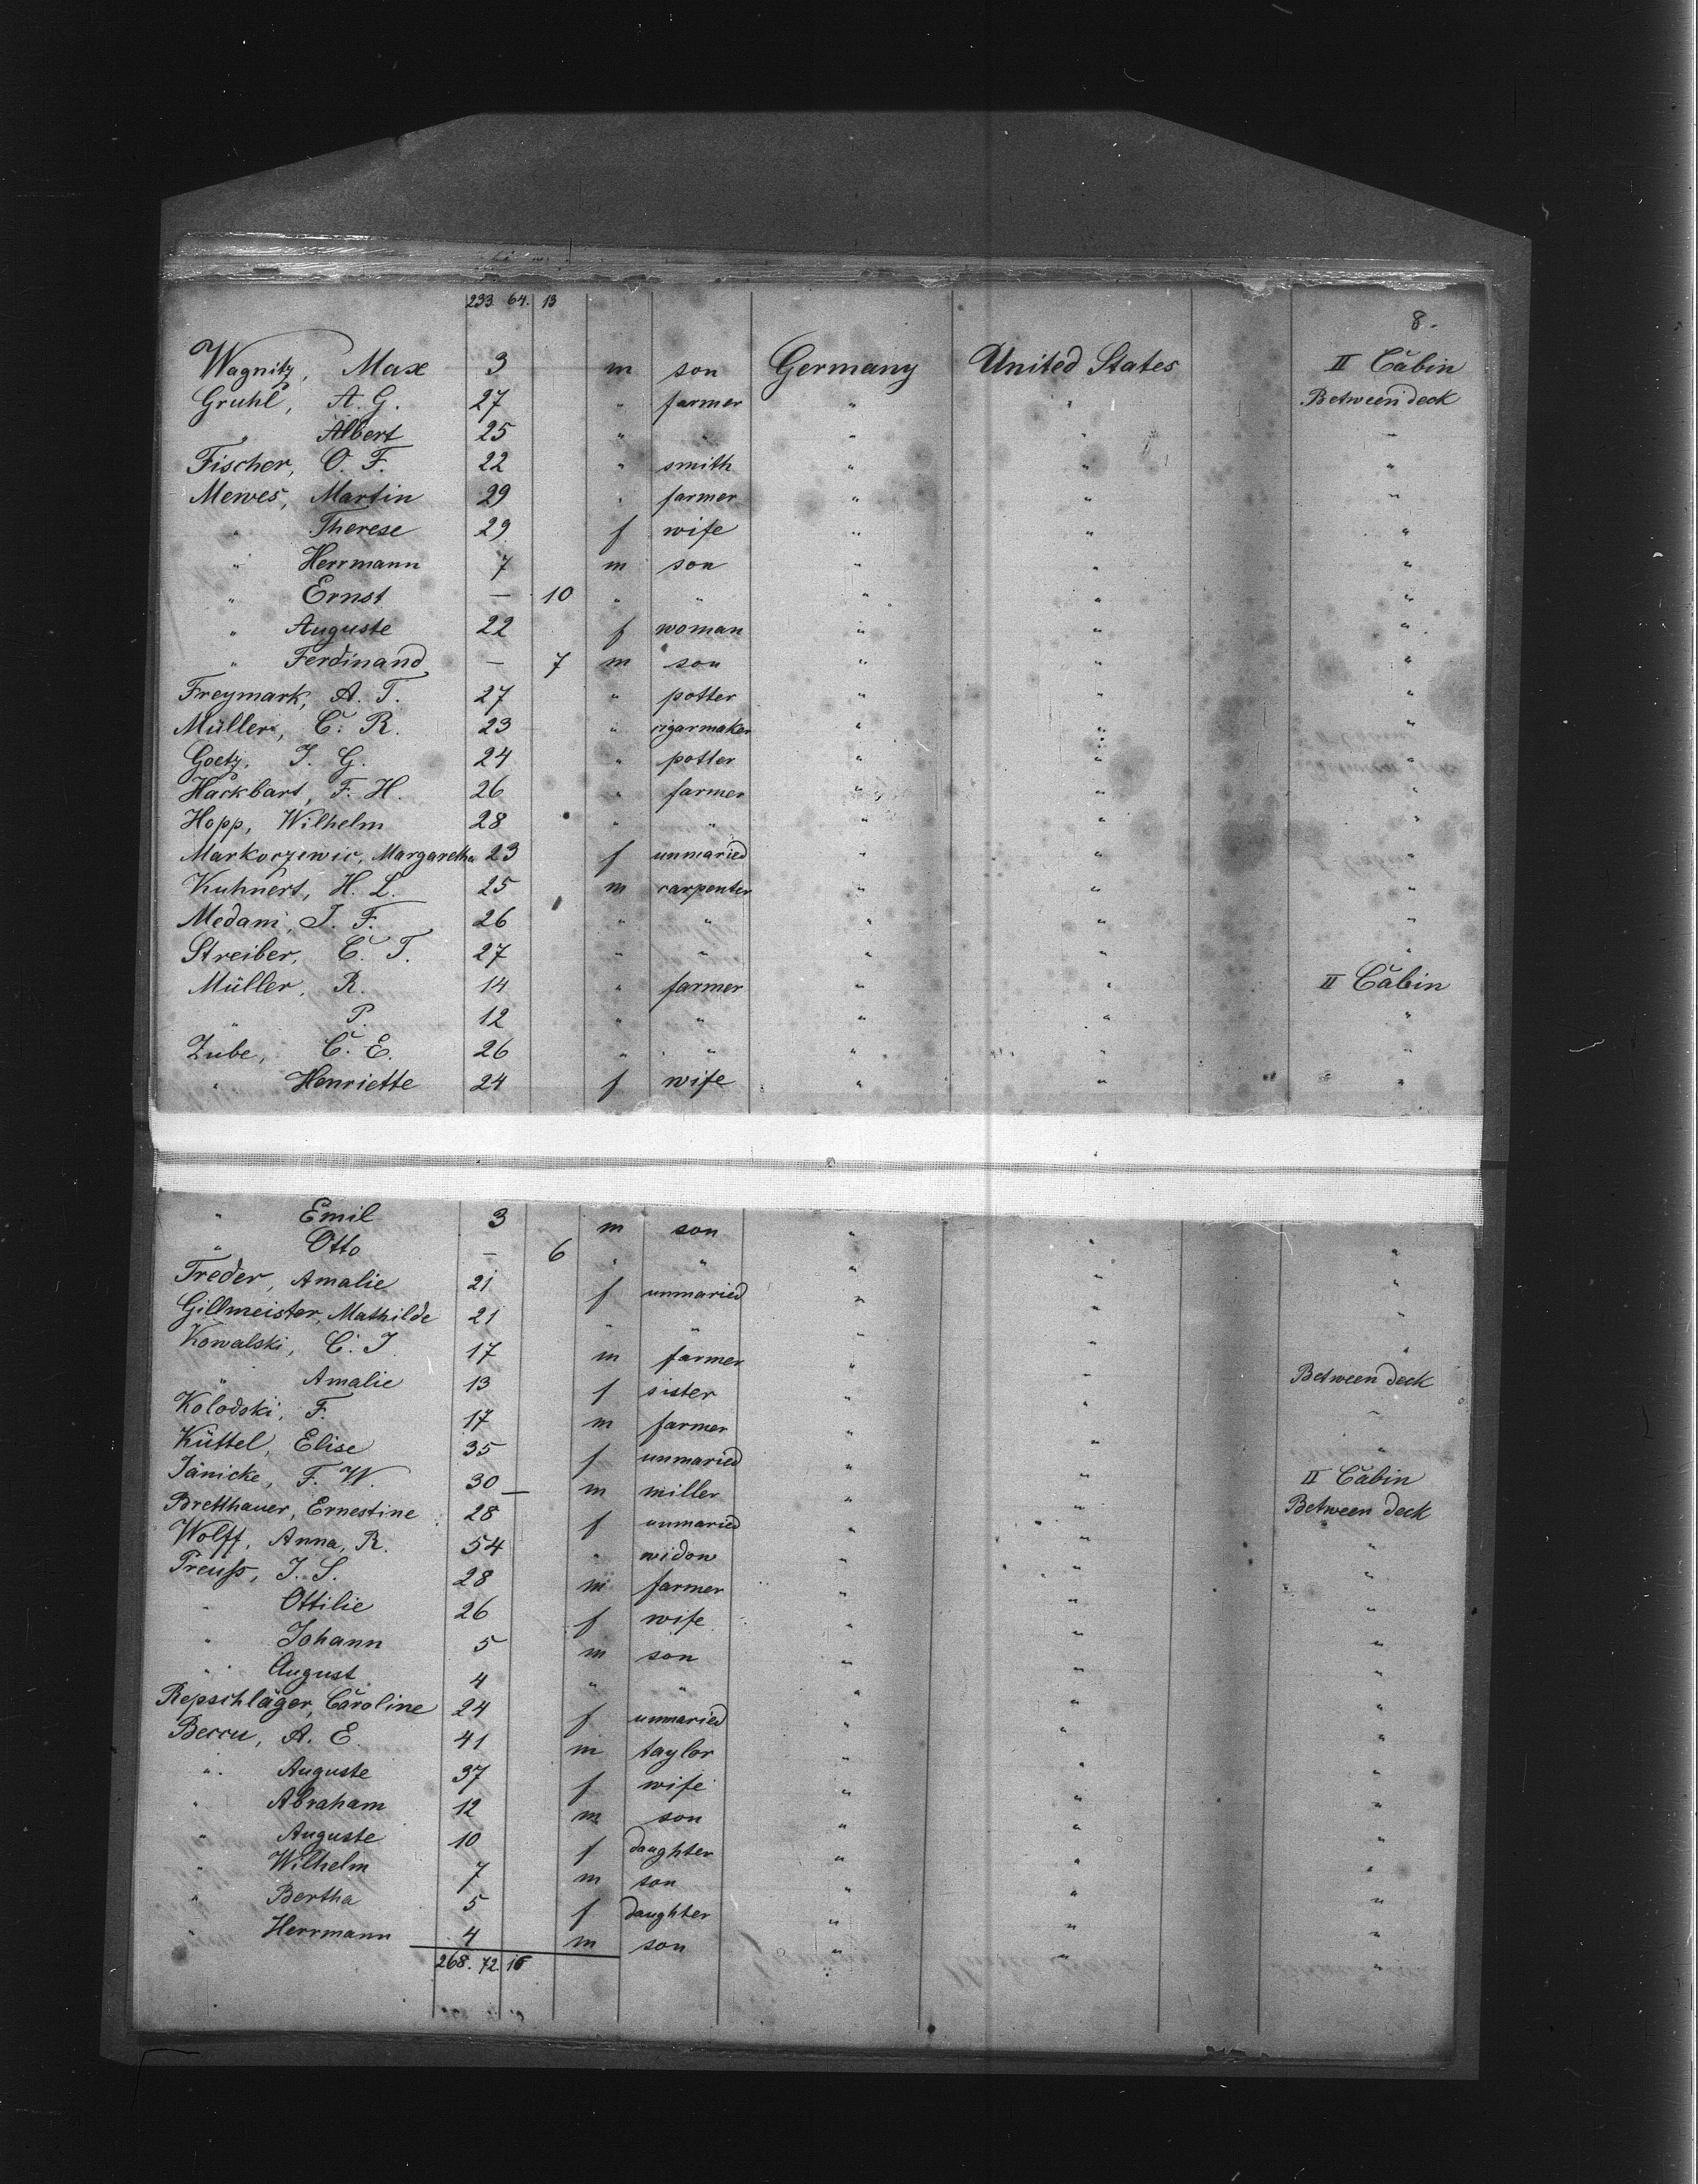 233. 64. 13
8.
Wagnitz, Max 3 m son Germany United States II Cabin
Gruhl, A. G. 27 " farmer " " Between deck
" Albert 25 " " " " "
Fischer, O. F. 22 " smith " " "
Mewes, Martin 29 " farmer " " "
" Therese 29 f wife " " "
" Herrmann 7 m son " " "
" Ernst — 10 " " " " "
" Auguste 22 f woman " " "
" Ferdinand — 7 m son " " "
Freymark, A. T. 27 " potter " " "
Müller, C. R. 23 " cigarmaker " " "
Goetz, J. G. 24 " potter " " "
Hackbart, F. H. 26 " farmer " " "
Hopp, Wilhelm 28 " " " " "
Markoczewic, Margaretha 23 f unmaried " " "
Kuhnert, H. L. 25 m carpenter " " "
Medam, J. F. 26 " " " " "
Streiber, C. T. 27 " " " " "
Müller, R. 14 " farmer " " II Cabin
" P. 12 " " " " "
Zube, C. E. 26 " " " " "
" Henriette 24 f wife " " "
" Emil 3 m son " " "
" Otto — 6 " " " " "
Treder, Amalie 21 f unmaried " " "
Gillmeister, Mathilde 21 " " " " "
Kowalski, C. J. 17 m farmer " " "
" Amalie 13 f sister " " Between deck
Kolodski, F. 17 m farmer " " "
Küttel, Elise 35 f unmaried " " "
Jänicke, F. W. 30 — m miller " " II Cabin
Bretthauer, Ernestine 28 f unmaried " " Between deck
Wolff, Anna, R. 54 " widow " " "
Preuß, J. S. 28 m farmer " " "
" Ottilie 26 f wife " " "
" Johann 5 m son " " "
" August 4 " " " " "
Repschläger, Caroline 24 f unmaried " " "
Beccu, A. E. 41 m taylor " " "
" Auguste 37 f wife " " "
" Abraham 12 m son " " "
" Auguste 10 f daughter " " "
" Wilhelm 7 m son " " "
" Bertha 5 f daughter " " "
" Herrmann 4 m son " " "
268. 72. 15